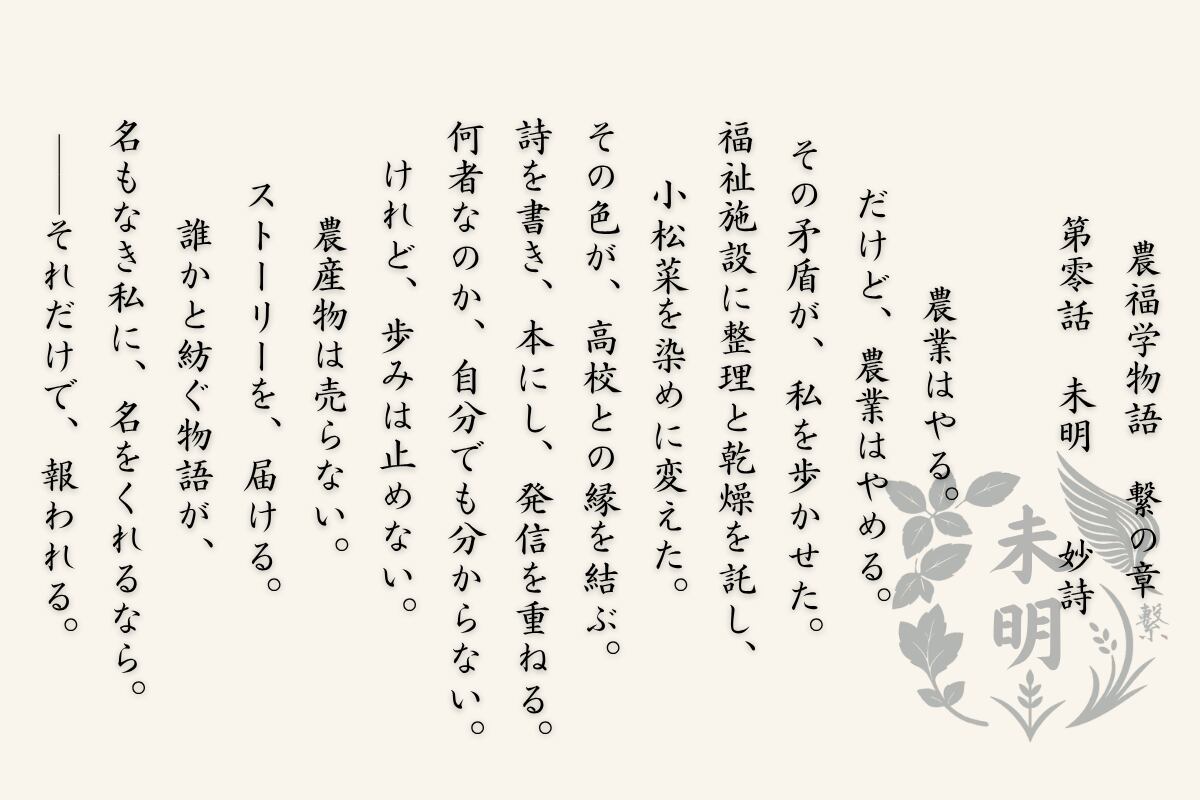 農福学物語　繋の章
第零話　未明　　妙詩
農業はやる。
だけど、農業はやめる。
その矛盾が、私を歩かせた。
福祉施設に整理と乾燥を託し、
小松菜を染めに変えた。
その色が、高校との縁を結ぶ。
詩を書き、本にし、発信を重ねる。
何者なのか、自分でも分からない。
けれど、歩みは止めない。
農産物は売らない。
ストーリーを、届ける。
誰かと紡ぐ物語が、
名もなき私に、名をくれるなら。
――それだけで、報われる。
未明
繋